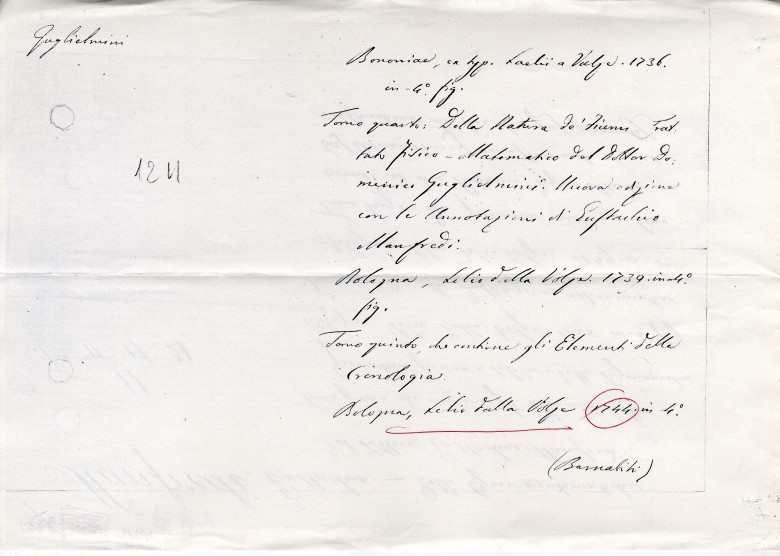 Guglielmini
Bononiae, ex typ. Laelii a Vulpe. 1736.
in-4° fig.
12 11
Tomo quarto: Della Natura de' Fiumi Trat:
tato fisico-Matematico del Dottor Do:
menico Guglielmini. Nuova edizione
con le Annotazioni di Eustachio
Manfredi.
Bologna, Lelio della Volpe. 1739. in 4°.
fig.
Tomo quinto, che contiene gli Elementi della
Cronologia.
Bologna, Lelio dalla Volpe 1744. in 4°.
(Barnabiti)